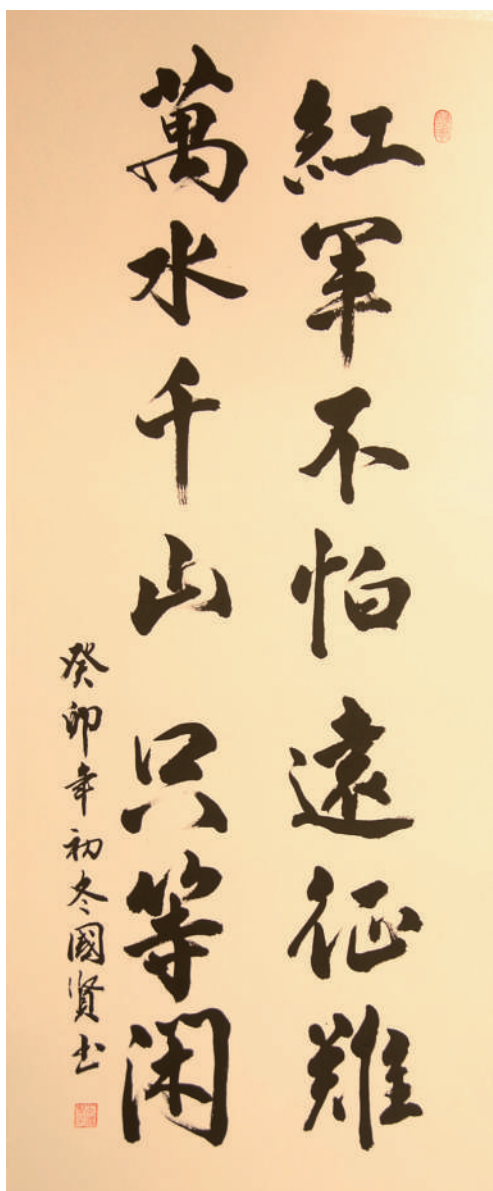 紅軍不怕遠征難
萬水千山只等閑
癸卯年初冬國賢书